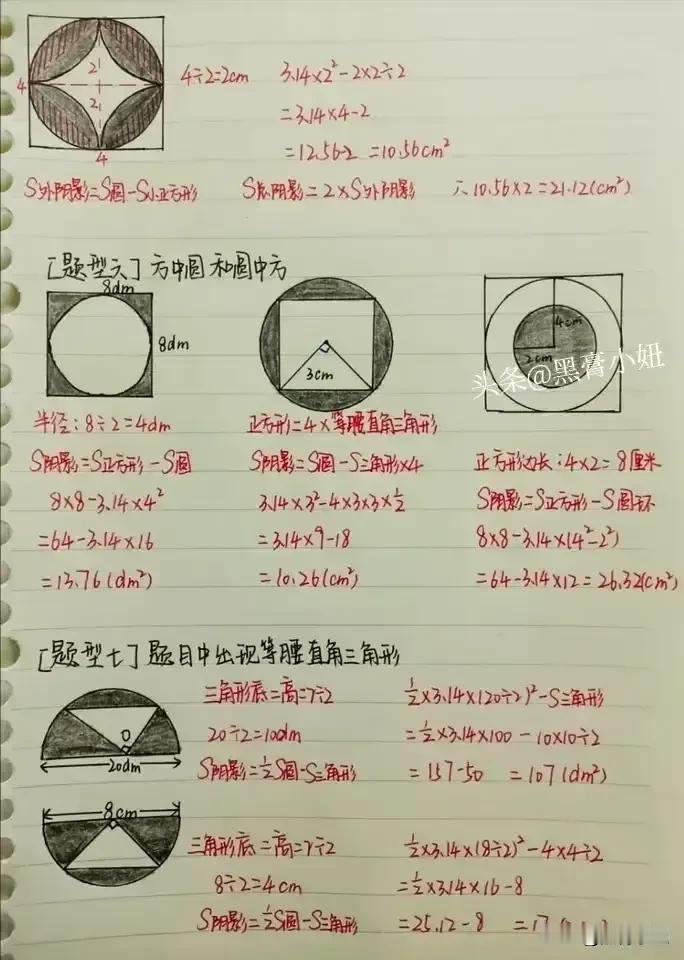 4
2
2
4
4÷2=2cm
3.14×2²-2×2÷2
=3.14×4-2
=12.56-2 =10.56cm²
S外阴影=S圆-S小正方形
S总阴影=2×S外阴影
∴10.56×2=21.12(cm²)
[题型六]方中圆和圆中方
8dm
8dm
3cm
4cm
2cm
头条@黑膏小妞
半径:8÷2=4dm
S阴影=S正方形-S圆
8×8-3.14×4²
=64-3.14×16
=13.76(dm²)
正方形=4×等腰直角三角形
S阴影=S圆-S三角形×4
3.14×3²-4×3×3×½
=3.14×9-18
=10.26(cm²)
正方形边长:4×2=8厘米
S阴影=S正方形-S圆环
8×8-3.14×(4²-2²)
=64-3.14×12=26.32(cm²)
[题型七]题目中出现等腰直角三角形
O
20dm
三角形底=高=r÷2
20÷2=10dm
S阴影=½S圆-S三角形
½×3.14×(20÷2)²-S三角形
=½×3.14×100-10×10÷2
=157-50 =107(dm²)
8cm
三角形底=高=r÷2
8÷2=4cm
S阴影=½S圆-S三角形
½×3.14×(8÷2)²-4×4÷2
=½×3.14×16-8
=25.12-8 =17